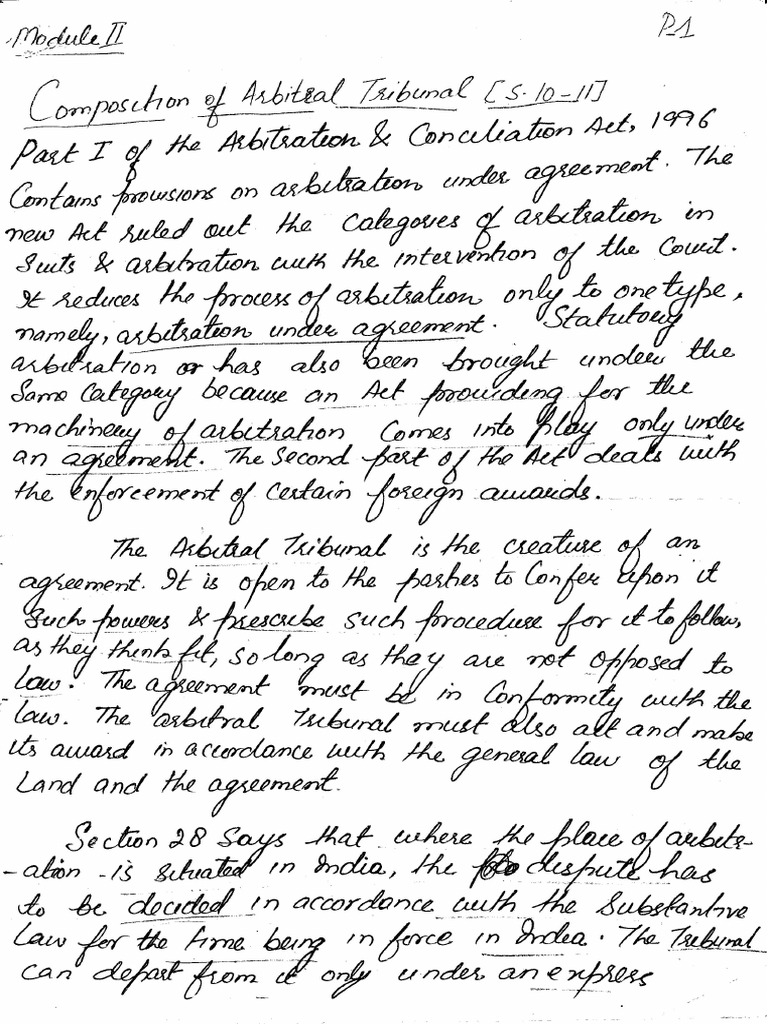 Module II
P1
Composition of Arbitral Tribunal [S. 10-11]
Part I of the Arbitration & Conciliation Act, 1996
Contains provisions on arbitration under agreement. The
new Act ruled out the categories of arbitration in
Suits & arbitration with the intervention of the Court.
It reduces the process of arbitration only to one type,
namely, arbitration under agreement. Statutory
arbitration or has also been brought under the
Same Category because an Act providing for the
machinery of arbitration Comes into play only under
an agreement. The Second part of the Act deals with
the enforcement of certain foreign awards.
The Arbitral Tribunal is the creature of an
agreement. It is open to the parties to Confer upon it
Such powers & prescribe such procedure for it to follow,
as they think fit, so long as they are not opposed to
law. The agreement must be in Conformity with the
law. The arbitral Tribunal must also act and make
its award in accordance with the general law of the
Land and the agreement.
Section 28 Says that where the place of arbitr-
-ation is situated in India, the dispute has
to be decided in accordance with the Substantive
Law for the time being in force in India. The Tribunal
can depart from it only under an express